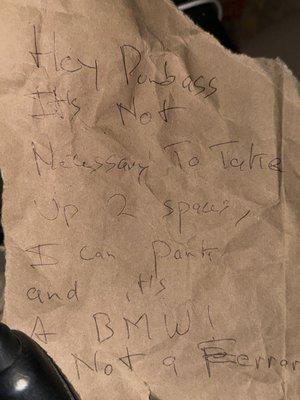 Hey Dumbass
It's Not
Necessary To Take
up 2 spaces,
I can Park
and it's
A BMW!
Not a Ferrar